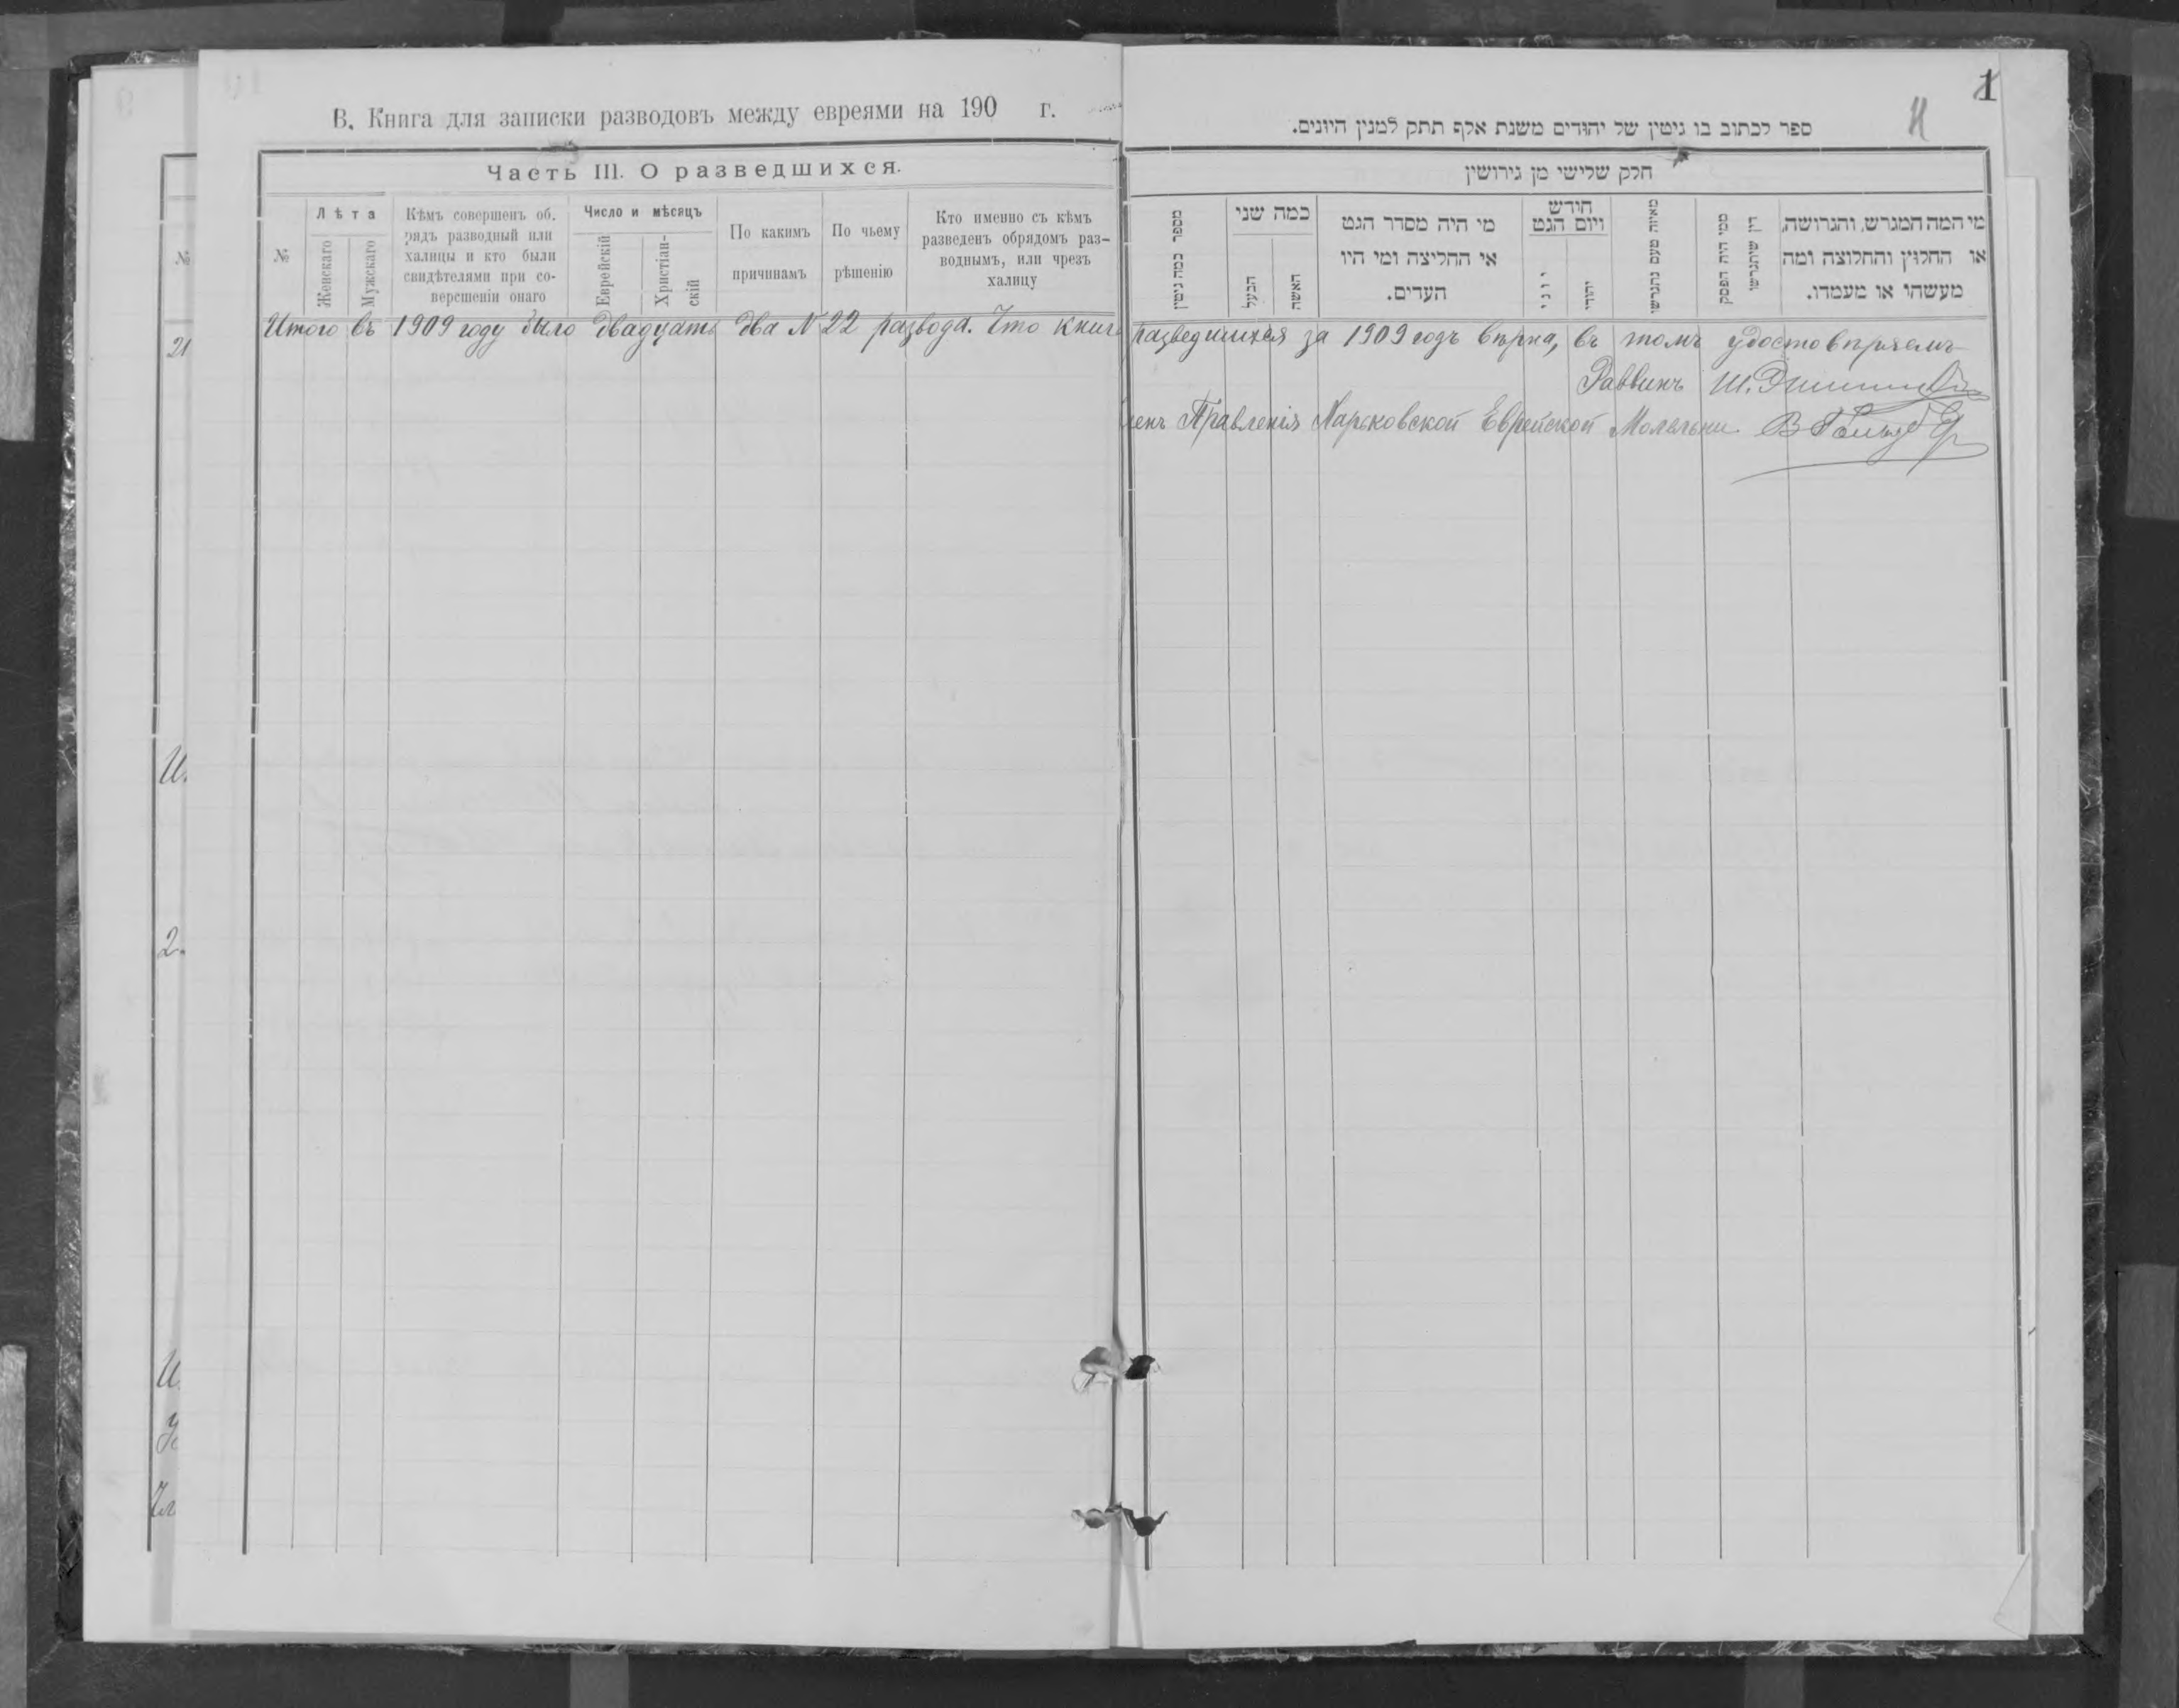 В. Книга для записки разводовъ между евреями на 190 г.
Часть III. О разведшихся.
№
Лѣта
Женскаго
Мужскаго
Кѣмъ совершенъ об.
рядъ разводный или
халицы и кто были
свидѣтелями при со-
вершеніи онаго
Число и мѣсяцъ
Еврейскій
Христіан-
скій
По какимъ
причинамъ
По чьему
рѣшенію
Кто именно съ кѣмъ
разведенъ обрядомъ раз-
воднымъ, или чрезъ
халицу
Итого въ 1909 году было двадцать два № 22 развода. Что книга
№
21
И.
2.
И
Чл
1
ספר לכתוב בו גיטין של יהודים משנת אלף תתק למנין היונים.
חלק שלישי מן גירושין
מספר כמה גיטין
כמה שני
הבעל
האשה
מי היה מסדר הגט
אי החליצה ומי היו
העדים.
חודש
ויום הגט
יוני
יהודי
מאיזה טעם נתגרשו
ממי היה הפסק
דין שיתגרשו
מי המה המגרש, והגרושה,
או החלוץ והחלוצה ומה
מעשהו או מעמדו.
разведшихся за 1909 годъ вѣрна, въ томъ удостовѣряемъ
Раввинъ Ш.
ленъ Правленія Харьковской Еврейской Молельни В